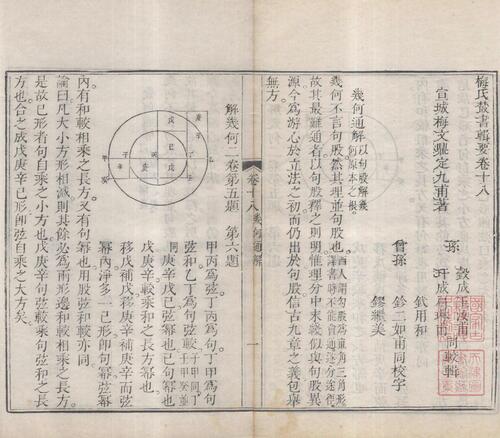 梅氏叢書輯要卷十八
宣城梅文鼎定九甫著
孫 瑴成玉汝甫
玕成肩琳甫 同較輯
曾孫 鈖用和
鈐二如甫同校字
鏐繼美
幾何通解 以句股解幾何原本之根
幾何不言句股然其理並句股也
故其最難通者以句股釋之則明惟理分中末線似與句股異
源今爲游心於立法之初而仍出於句股信古九章之義包舉
無方
解幾何二卷第五題 第六題
甲丙爲弦丁丙爲句丁甲爲句
弦和乙丁爲句弦較
同庚辛戊己弦冪也
戊庚辛較乘和之長方冪也
移戊補戊移庚辛補庚辛而弦
冪内淨多一己形即句冪弦冪
内有和較相乘之長方又有句冪也用股弦和較亦同
論曰凡大小方形相減則其餘必爲兩形邊和較相乘之長方
是故己形者句自乘之小方也戊庚辛句弦較乘句弦和之長
方也合之成戊庚辛己形即弦自乘之大方矣
卷十八 幾何通解
一